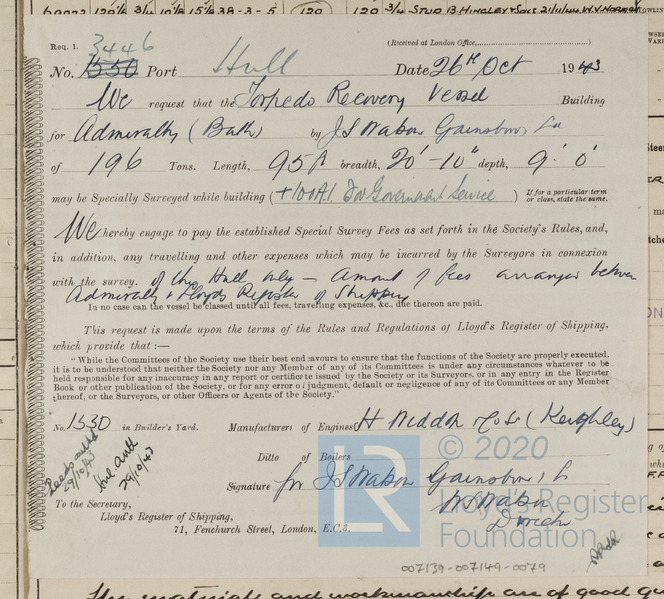 120 3/4 STUD B. HINGLEY & SONS 21/11/44 W.V. NORMAN
Req. 1. 3446 (Received at London Office, )
No. 1530 Port Hull Date 26th Oct 1943
We request that the Torpedo Recovery Vessel Building
for Admiralty (Bath) by J S Watson Gainsboro' Ld
of 196 Tons. Length, 95 ft breadth, 20'-10" depth, 9' 0"
may be Specially Surveyed while building ( +100A1. For Government Service ) If for a particular term
or class, state the same.
We hereby engage to pay the established Special Survey Fees as set forth in the Society's Rules, and,
in addition, any travelling and other expenses which may be incurred by the Surveyors in connexion
with the survey. of the Hull only — Amount of fees arranged between
Admiralty & Lloyds Register of Shipping
In no case can the vessel be classed until all fees, travelling expenses, &c., due thereon are paid.
This request is made upon the terms of the Rules and Regulations of Lloyd's Register of Shipping,
which provide that :—
"While the Committees of the Society use their best endeavours to ensure that the functions of the Society are properly executed,
it is to be understood that neither the Society nor any Member of any of its Committees is under any circumstances whatever to be
held responsible for any inaccuracy in any report or certificate issued by the Society or its Surveyors, or in any entry in the Register
Book or other publication of the Society, or for any error of judgment, default or negligence of any of its Committees or any Member
thereof, or the Surveyors, or other Officers or Agents of the Society."
No. 1530 in Builder's Yard. Manufacturers of Engines H Widdop & Co Ld (Keighley)
Ditto of Boilers
29/10/43
29/10/43
Signature for J S Watson Gainsboro' Ld
W Watson
Director
To the Secretary,
Lloyd's Register of Shipping,
71, Fenchurch Street, London, E.C.3.
LR © 2020
Lloyd's Register
Foundation
007139-007149-0079
The materials and workmanship are of good